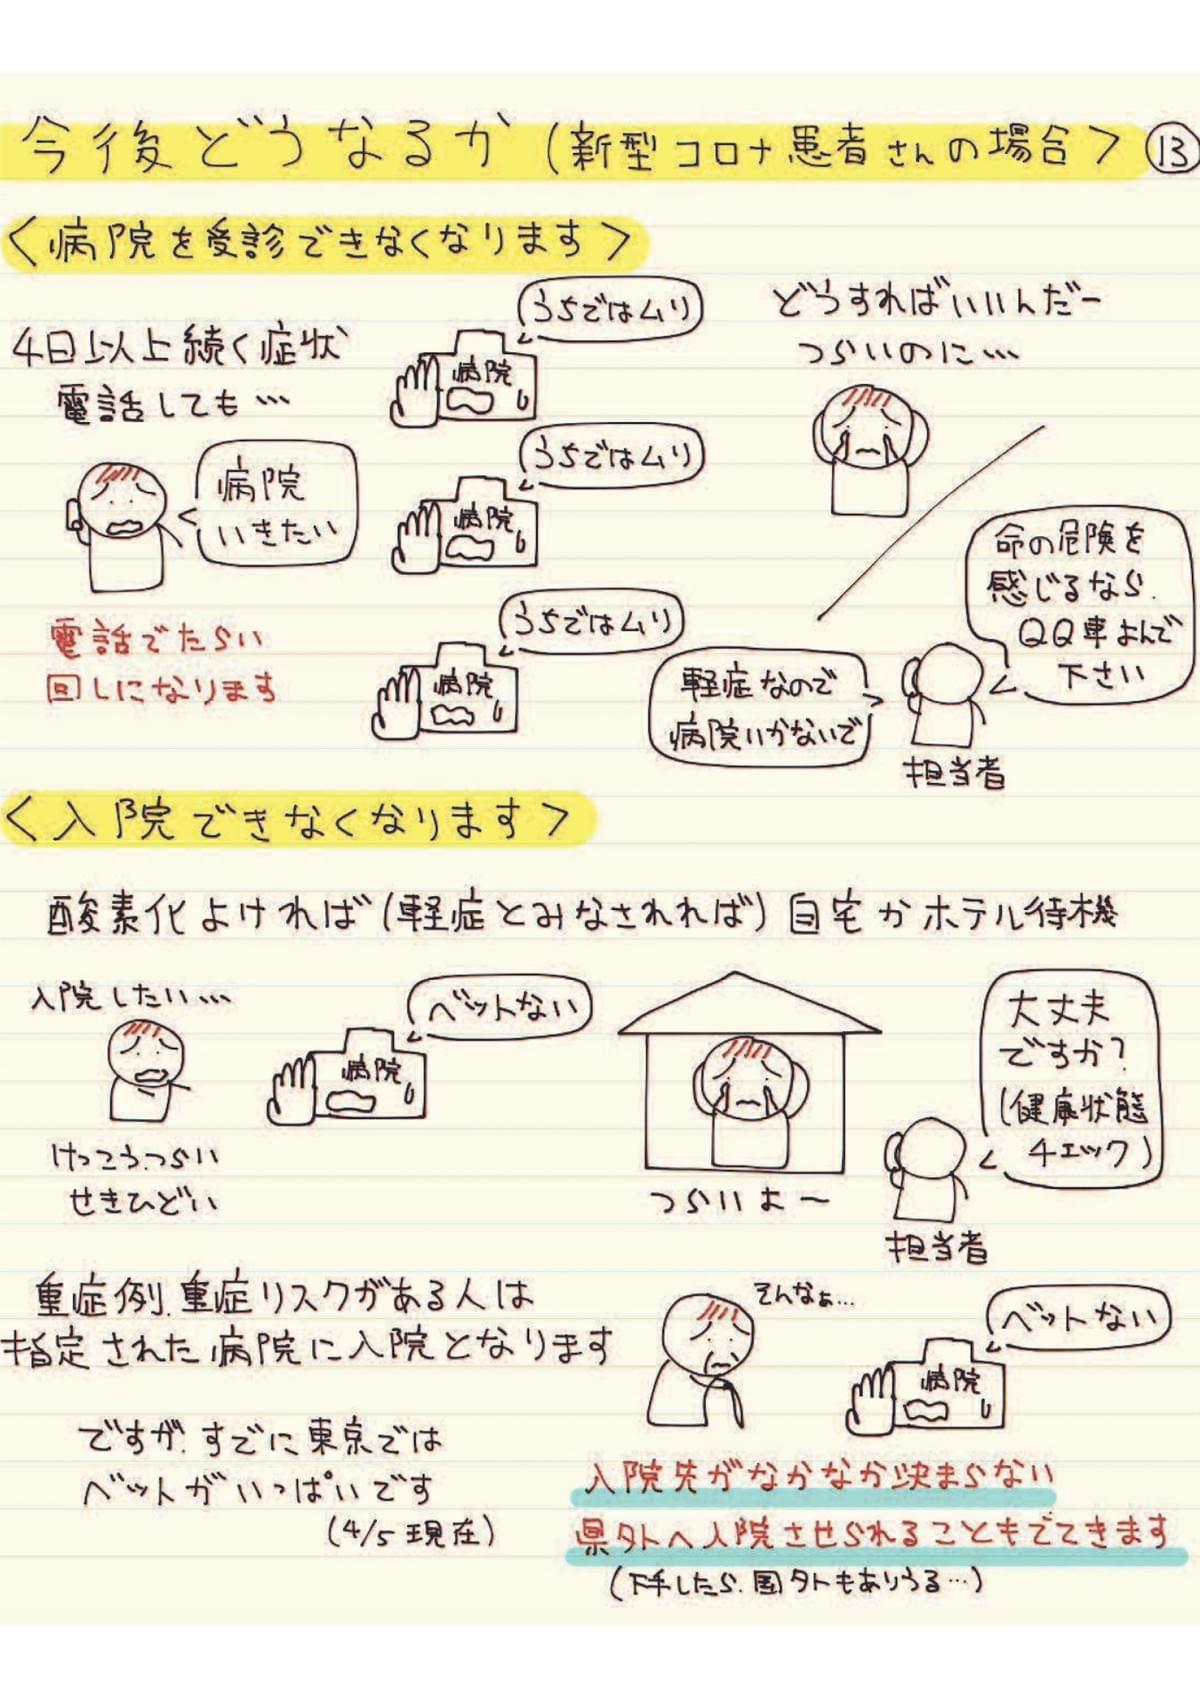 今後どうなるか(新型コロナ患者さんの場合> ⑬
<病院を受診できなくなります>
4日以上続く症状
電話しても…
病院
いきたい
電話でたらい
回しになります
うちではムリ
病院
うちではムリ
病院
うちではムリ
病院
どうすればいいんだー
つらいのに…
命の危険を
感じるなら.
QQ車よんで
下さい
軽症なので
病院いかないで
担当者
<入院できなくなります>
酸素化よければ(軽症とみなされれば)自宅かホテル待機
入院したい…
けっこうつらい
せきひどい
ベットない
病院
つらいよ〜
大丈夫
ですか?
(健康状態
チェック)
担当者
重症例.重症リスクがある人は
指定された病院に入院となります
ですが.すでに東京では
ベットがいっぱいです
(4/5現在)
そんなぁ…
ベットない
病院
入院先がなかなか決まらない
県外へ入院させられることもでてきます
(下手したら.国外もありうる…)